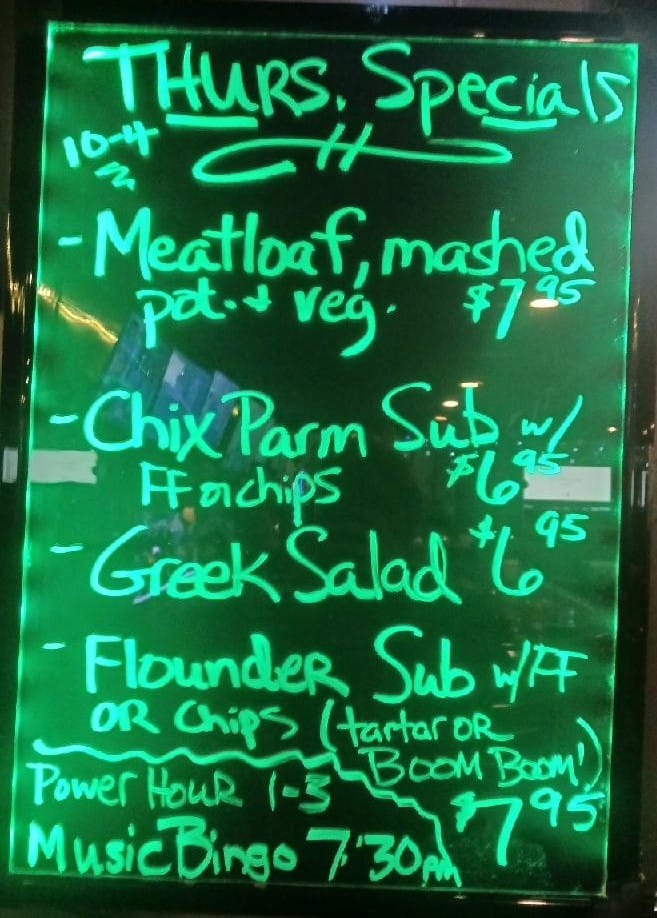 THURS. Specials
10-4
- Meatloaf, mashed
pot. + veg. $7.95
- Chix Parm Sub w/
FF or chips $6.95
- Greek Salad $6.95
- Flounder Sub w/FF
OR Chips (tartar OR
BOOM BOOM!)
Power Hour 1-3 $7.95
Music Bingo 7:30pm